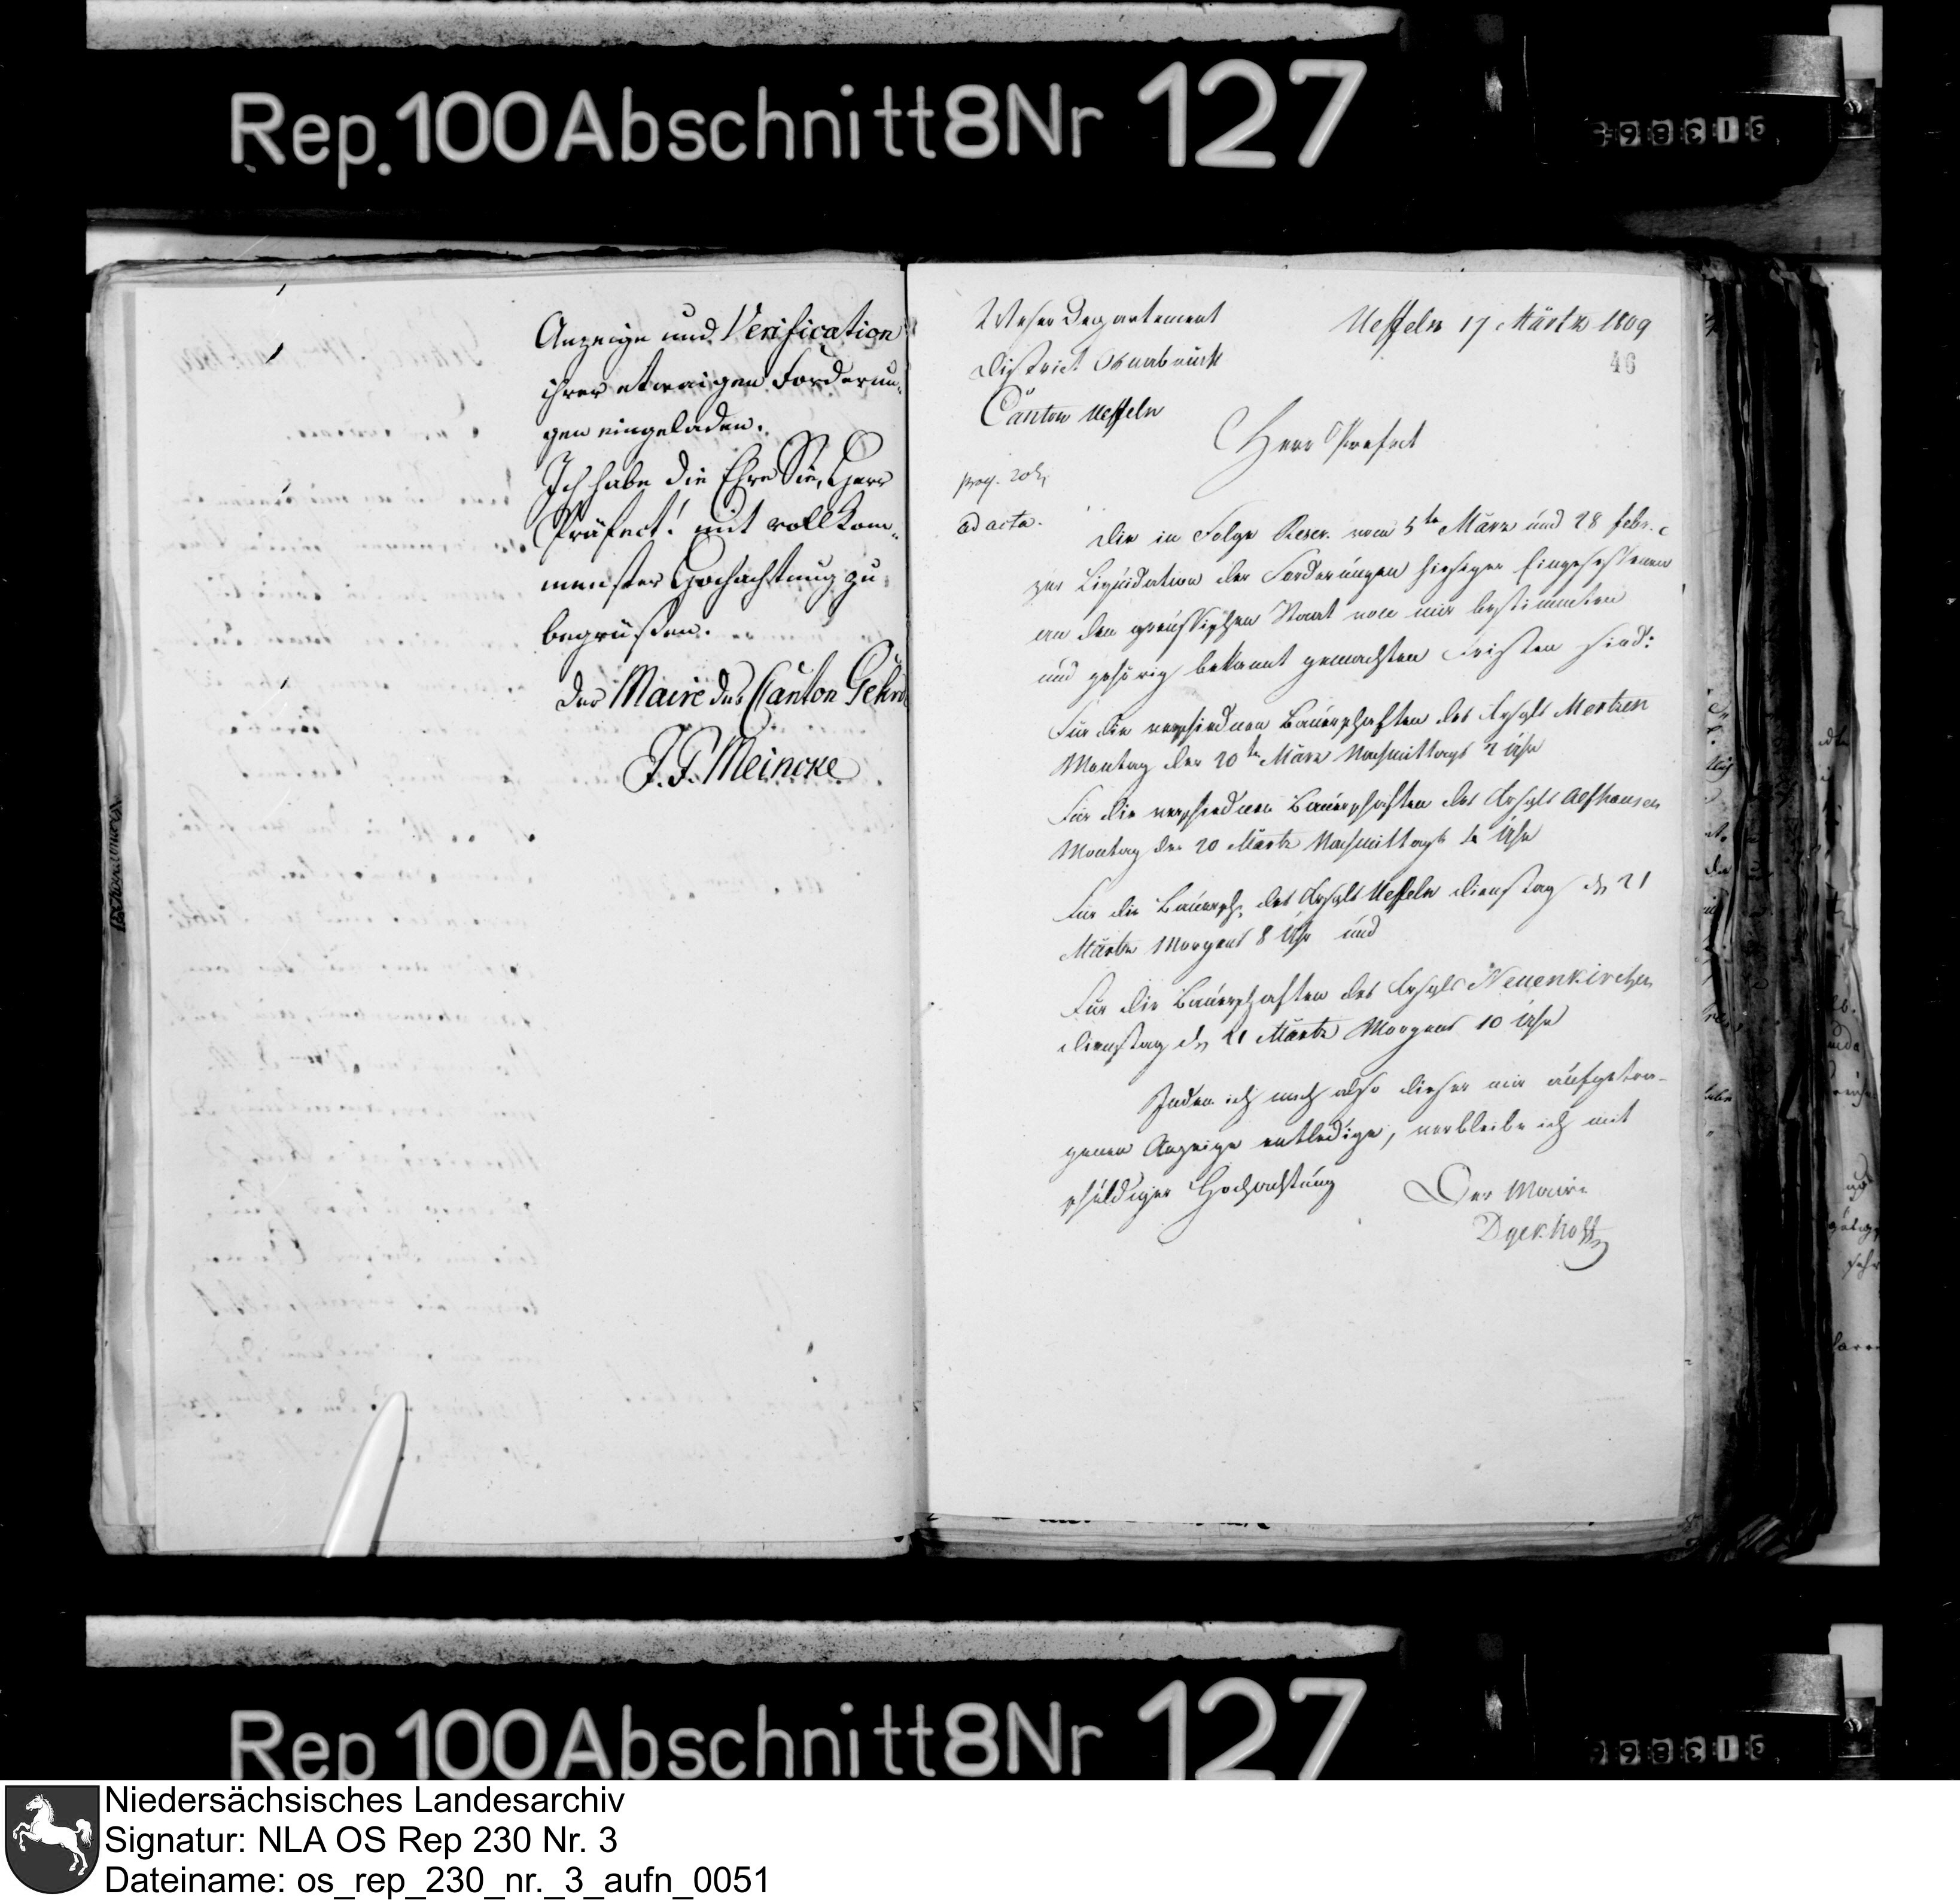 Rep. 100 Abschnitt 8 Nr 127
Anzeige und Verification
ihrer etwaigen Forderun-
gen eingeladen.
Ich habe die Ehre Sie, Herr
Präfect! mit vollkom-
menster Hochachtung zu
begrüßen.
Der Maire des Canton Gehrd
J. F. Meincke
Weser Departement
District Osnabrück
Canton Ueffeln
Ueffeln 17 Märtz 1809
46
Herr Prefect
ad acta.
Die in Folge Rescr. vom 5ten März und 28 Febr. c
zur Liquidation der Forderungen hiesiger Eingesessenen
an den preussischen Staat von mir bestimmten
und gehörig bekannt gemachten Fristen sind:
Für die verschiednen Bauerschaften des Kirchspls Mertzen
Montag den 20ten März Nachmittags 2 Uhr
Für die verschiednen Bauerschaften des Kirchspls Alfhausen
Montag den 20 Märtz Nachmittags Uhr
Für die Bauersch. des Kirchspls Ueffeln Dienstag d. 21
Märtz Morgens 8 Uhr und
Für die Bauerschaften des Kirchspls Neuenkirchen
Dienstag d. 21 Märtz Morgens 10 Uhr
Indem ich mich also dieser mir aufgetra-
genen Anzeige entledige, verbleibe ich mit
schuldiger Hochachtung
Der Maire
Dyckhoff
Rep 100 Abschnitt 8 Nr 127
Niedersächsisches Landesarchiv
Signatur: NLA OS Rep 230 Nr. 3
Dateiname: os_rep_230_nr._3_aufn_0051